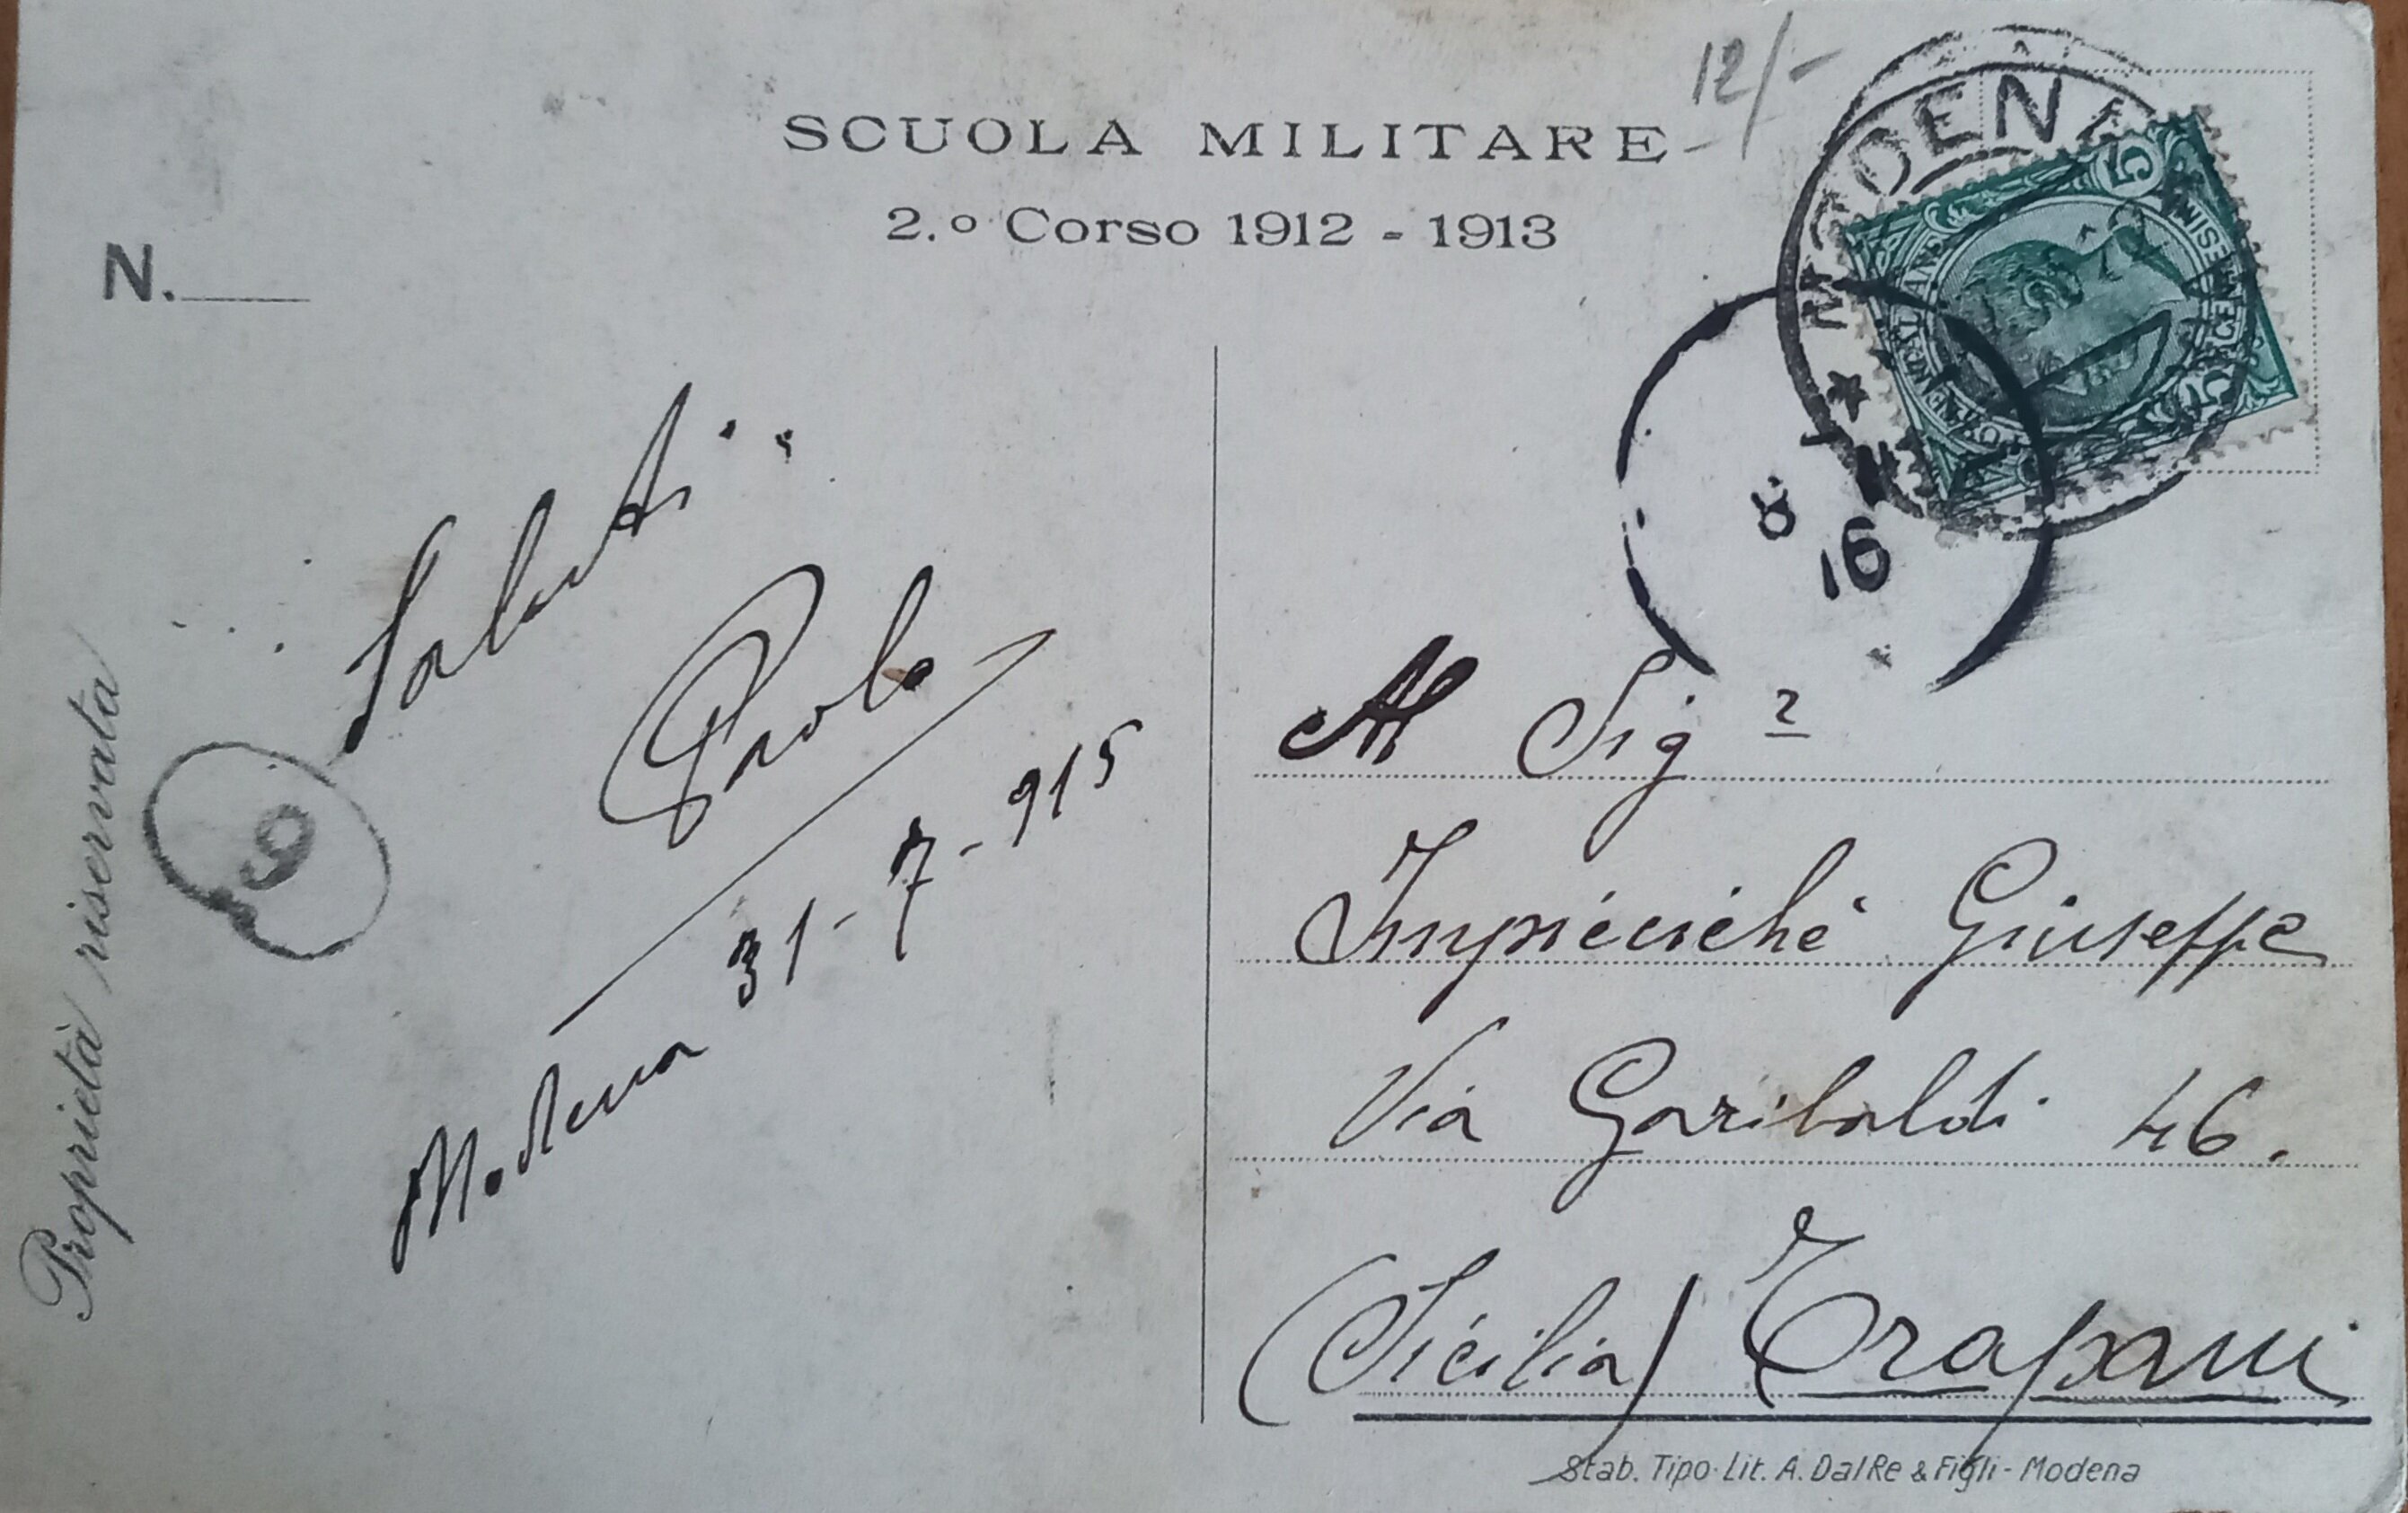 SCUOLA MILITARE
2.º Corso 1912 - 1913
12/-
N.
MODENA
5
POSTE ITALIANE
CENTESIMI 5
8
16
Proprietà riservata
9
Saluti
Paolo
Modena 31-7-915
Al Sigr
Impiccichè Giuseppe
Via Garibaldi 46.
(Sicilia) Trapani
Stab. Tipo-Lit. A. Dal Re & Figli - Modena